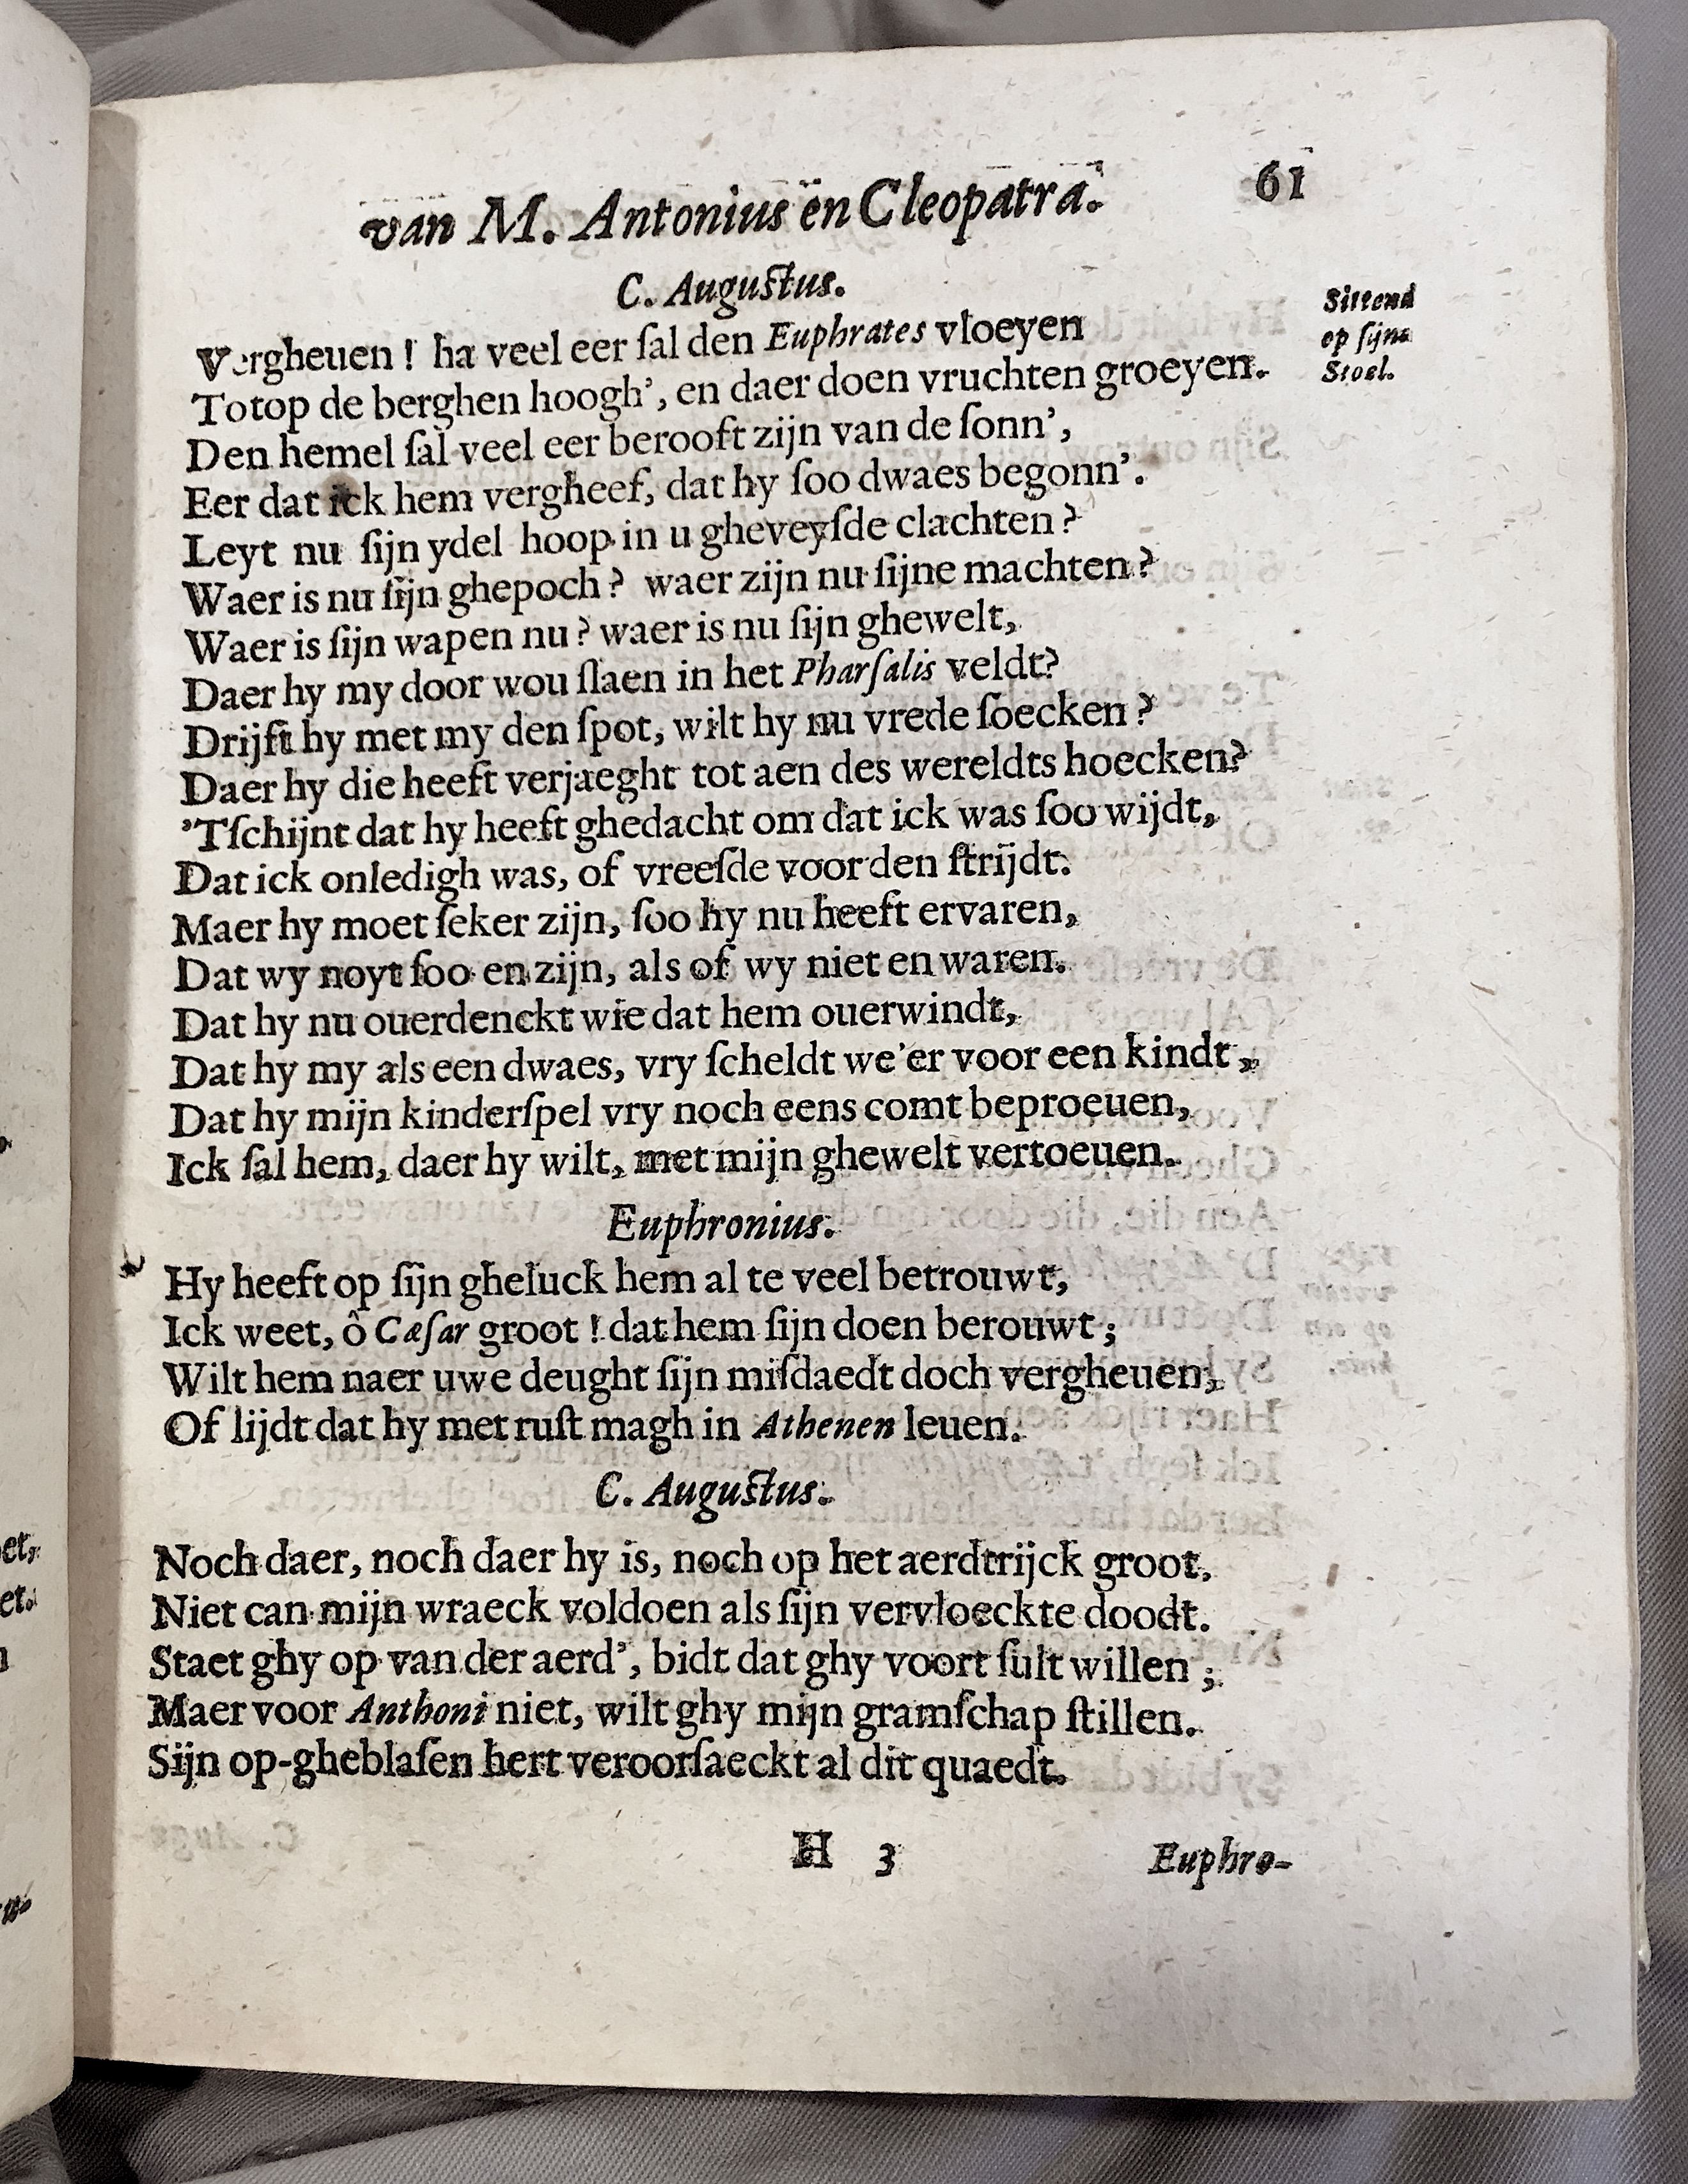 van M. Antonius en Cleopatra. 61
C. Augustus.
Sittend
op ſijne
Stoel.
Vergheuen ! ha veel eer ſal den Euphrates vloeyen
Totop de berghen hoogh’, en daer doen vruchten groeyen.
Den hemel ſal veel eer berooft zijn van de ſonn’,
Eer dat ick hem vergheef, dat hy ſoo dwaes begonn’.
Leyt nu ſijn ydel hoop in u gheveyſde clachten ?
Waer is nu ſijn ghepoch ? waer zijn nu ſijne machten ?
Waer is ſijn wapen nu ? waer is nu ſijn ghewelt,
Daer hy my door wou ſlaen in het Pharſalis veldt?
Drijft hy met my den ſpot, wilt hy nu vrede ſoecken ?
Daer hy die heeft verjaeght tot aen des wereldts hoecken?
’Tſchijnt dat hy heeft ghedacht om dat ick was ſoo wijdt,
Dat ick onledigh was, of vreeſde voor den ſtrijdt.
Maer hy moet ſeker zijn, ſoo hy nu heeft ervaren,
Dat wy noyt ſoo en zijn, als of wy niet en waren.
Dat hy nu ouerdenckt wie dat hem ouerwindt,
Dat hy my als een dwaes, vry ſcheldt we’er voor een kindt,
Dat hy mijn kinderſpel vry noch eens comt beproeuen,
Ick ſal hem, daer hy wilt, met mijn ghewelt vertoeuen.
Euphronius.
Hy heeft op ſijn gheluck hem al te veel betrouwt,
Ick weet, ô Cæſar groot ! dat hem ſijn doen berouwt ;
Wilt hem naer uwe deught ſijn miſdaedt doch vergheuen,
Of lijdt dat hy met ruſt magh in Athenen leuen.
C. Augustus.
Noch daer, noch daer hy is, noch op het aerdtrijck groot,
Niet can mijn wraeck voldoen als ſijn vervloeckte doodt.
Staet ghy op van der aerd’, bidt dat ghy voort ſult willen ;
Maer voor Anthoni niet, wilt ghy mijn gramſchap ſtillen.
Sijn op-gheblaſen hert veroorſaeckt al dit quaedt.
H 3 Euphro-